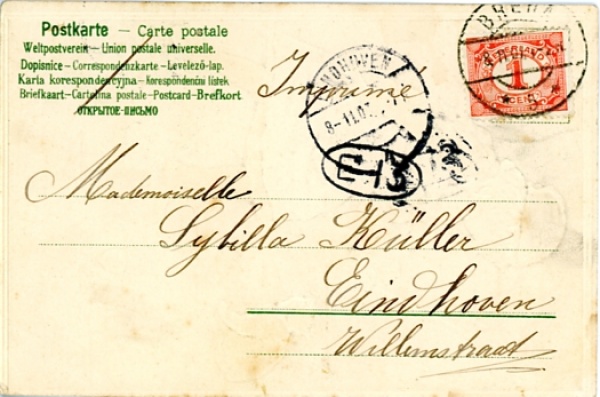 Postkarte – Carte postale
Weltpostverein – Union postale universelle.
Dopisnice – Correspondenzkarte – Levelező-lap.
Karta korespondencyjna – Korespondenční lístek
Briefkaart – Cartolina postale – Postcard – Brefkort
ОТКРЫТОЕ – ПИСЬМО
Imprimé
BREDA
NEDERLAND
1
CENT
8-11.0
E 13
Mademoiselle
Sybilla Küller
Eindhoven
Willemstraat